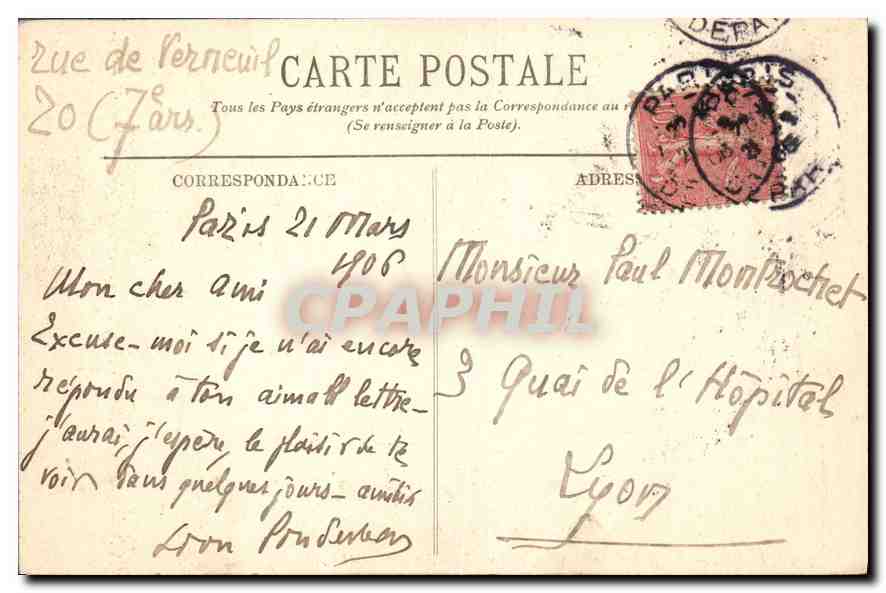 rue de Verneuil
20 (7e ars.)
CARTE POSTALE
Tous les Pays étrangers n'acceptent pas la Correspondance au
(Se renseigner à la Poste).
CORRESPONDANCE
Paris 21 Mars
1906
Mon cher ami
Excuse-moi si je n'ai encore
répondu à ton aimabl lettre-
j'aurai, j'espère, le plaisir de te
voir dans quelques jours - amitiés
Léon
ADRES
Monsieur Paul Montrochet
3 Quai de l'Hôpital
Lyon
PARIS
DEPA
CPAPHIL